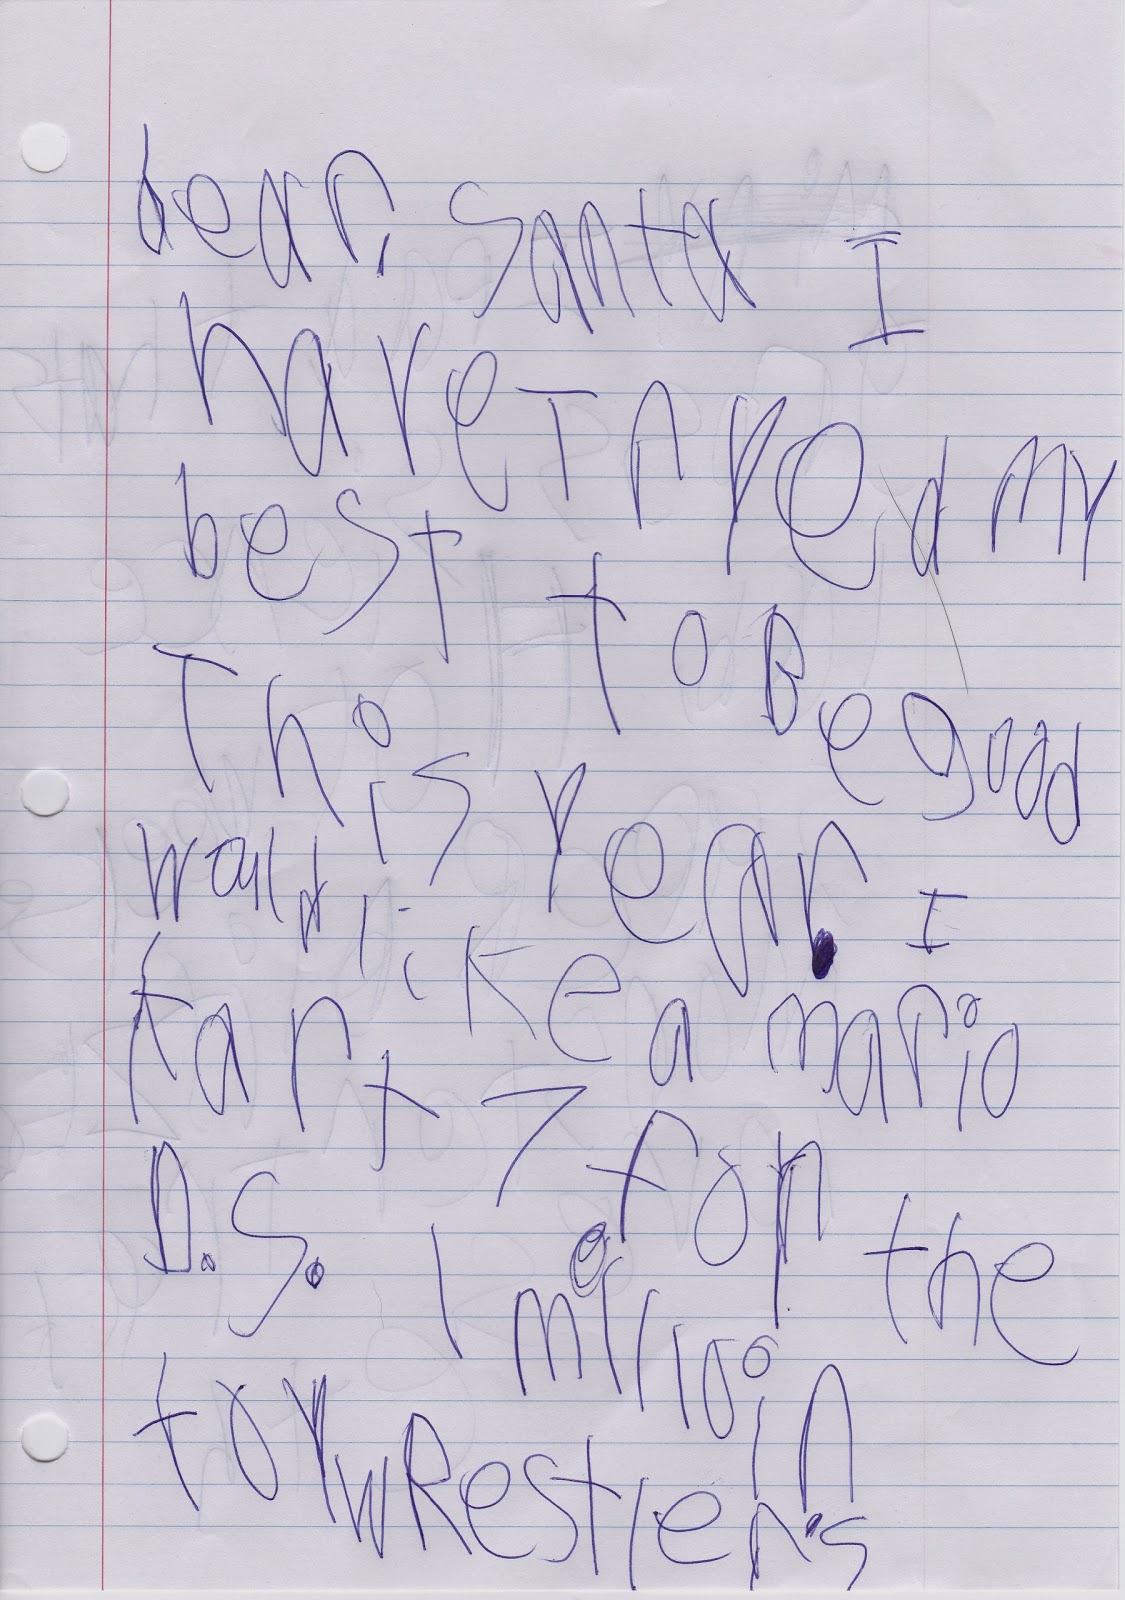 dear, santa I
have Tryed my
best to Be good
This year. I
would like a mario
kart 7 for the
D.S. 1 milloin
toy wRestlers